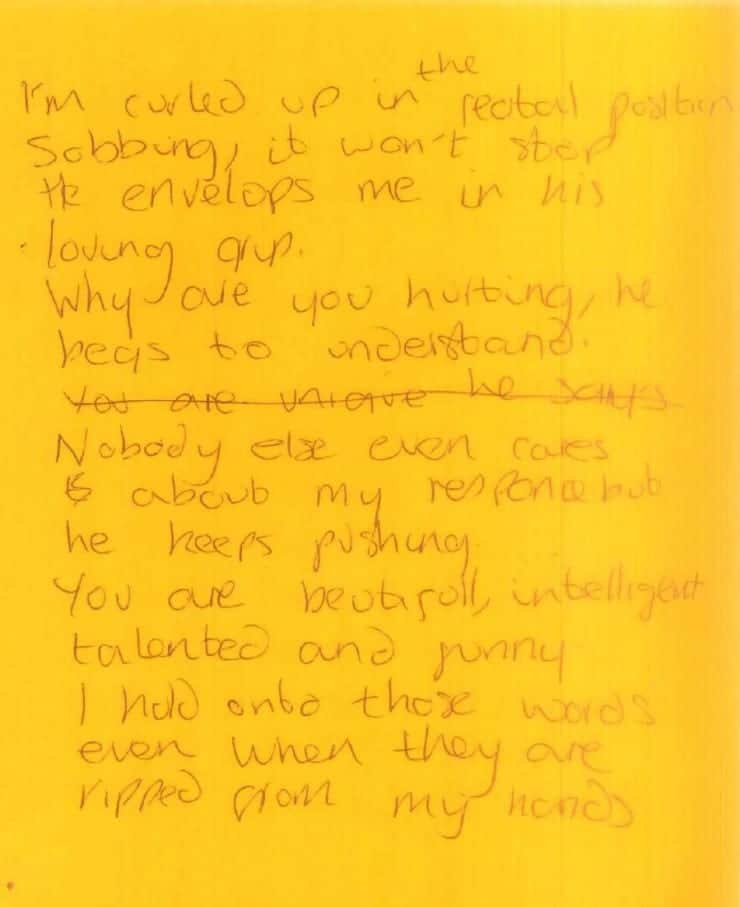 I'm curled up in the feotoal position
Sobbing, it won't stop
He envelops me in his
loving grip.
Why are you hurting, he
begs to understand.
You are unique he says
Nobody else even cares
about my responce but
he keeps pushing.
You are beutifull, intelligent
talented and funny
I hold onto those words
even when they are
ripped from my hands